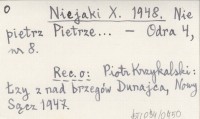 O
Niejaki X. 1948. Nie
pietrz Pietrze... — Odra 4,
nr 8.
Rec. o: Piotr Krzykalski:
Łzy z nad brzegów Dunajca, Nowy
Sącz 1947.